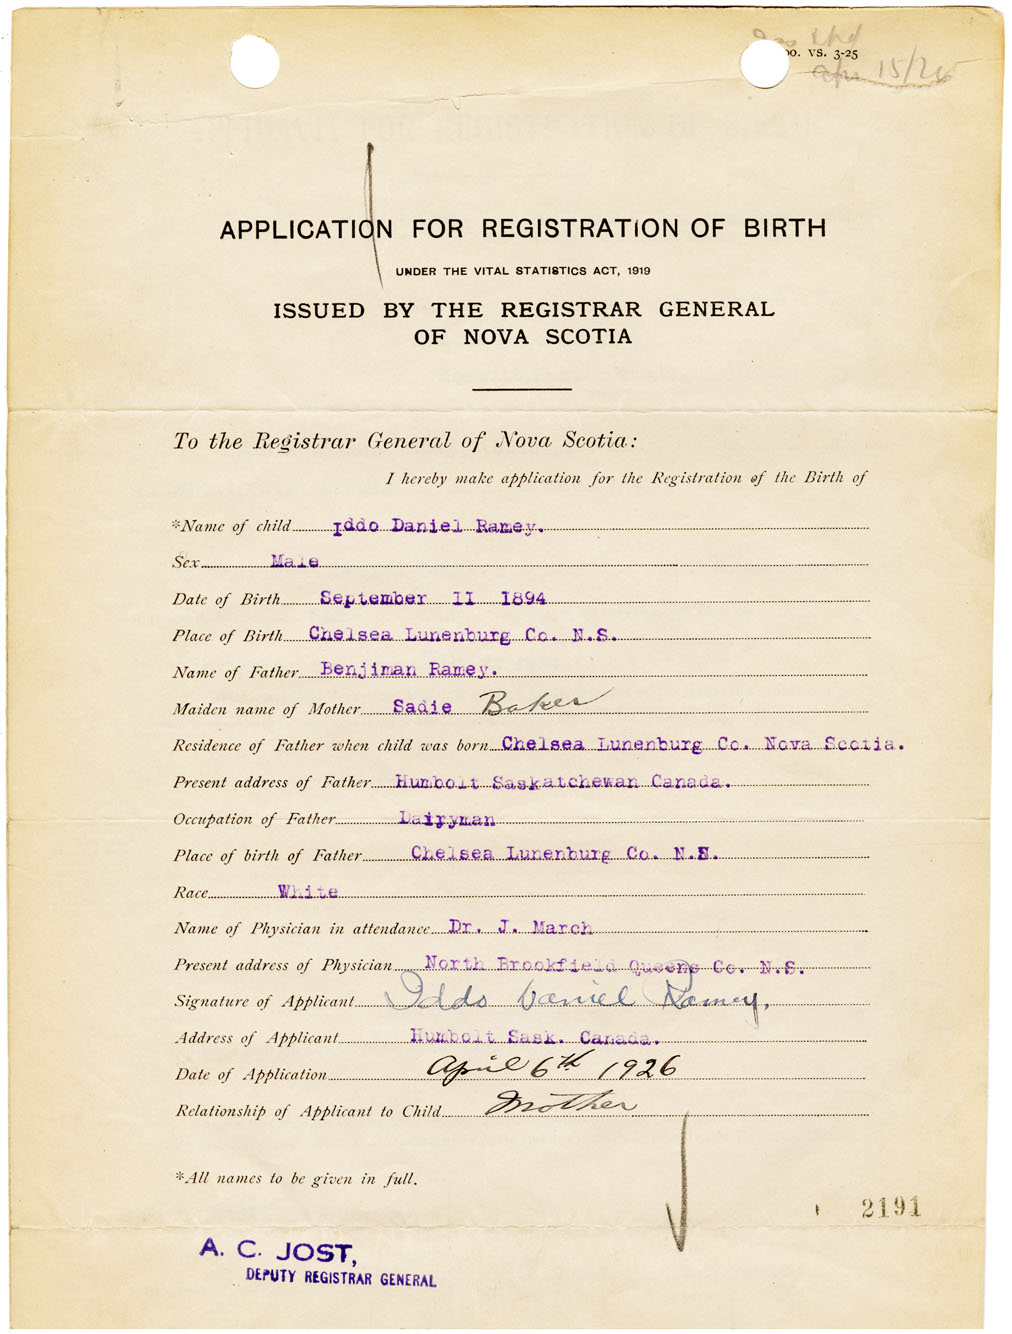 oo. VS. 3-25
15/26
APPLICATION FOR REGISTRATION OF BIRTH
UNDER THE VITAL STATISTICS ACT, 1919
ISSUED BY THE REGISTRAR GENERAL
OF NOVA SCOTIA
To the Registrar General of Nova Scotia:
I hereby make application for the Registration of the Birth of
*Name of child Iddo Daniel Ramey.
Sex Male
Date of Birth September 11 1894
Place of Birth Chelsea Lunenburg Co. N.S.
Name of Father Benjiman Ramey.
Maiden name of Mother Sadie Baker
Residence of Father when child was born Chelsea Lunenburg Co. Nova Scotia.
Present address of Father Humbolt Saskatchewan Canada.
Occupation of Father Dairyman
Place of birth of Father Chelsea Lunenburg Co. N.S.
Race White
Name of Physician in attendance Dr. J. March
Present address of Physician North Brookfield Queens Co. N.S.
Signature of Applicant Iddo Daniel Ramey,
Address of Applicant Humbolt Sask. Canada.
Date of Application April 6th 1926
Relationship of Applicant to Child Mother
*All names to be given in full.
2191
A. C. JOST,
DEPUTY REGISTRAR GENERAL